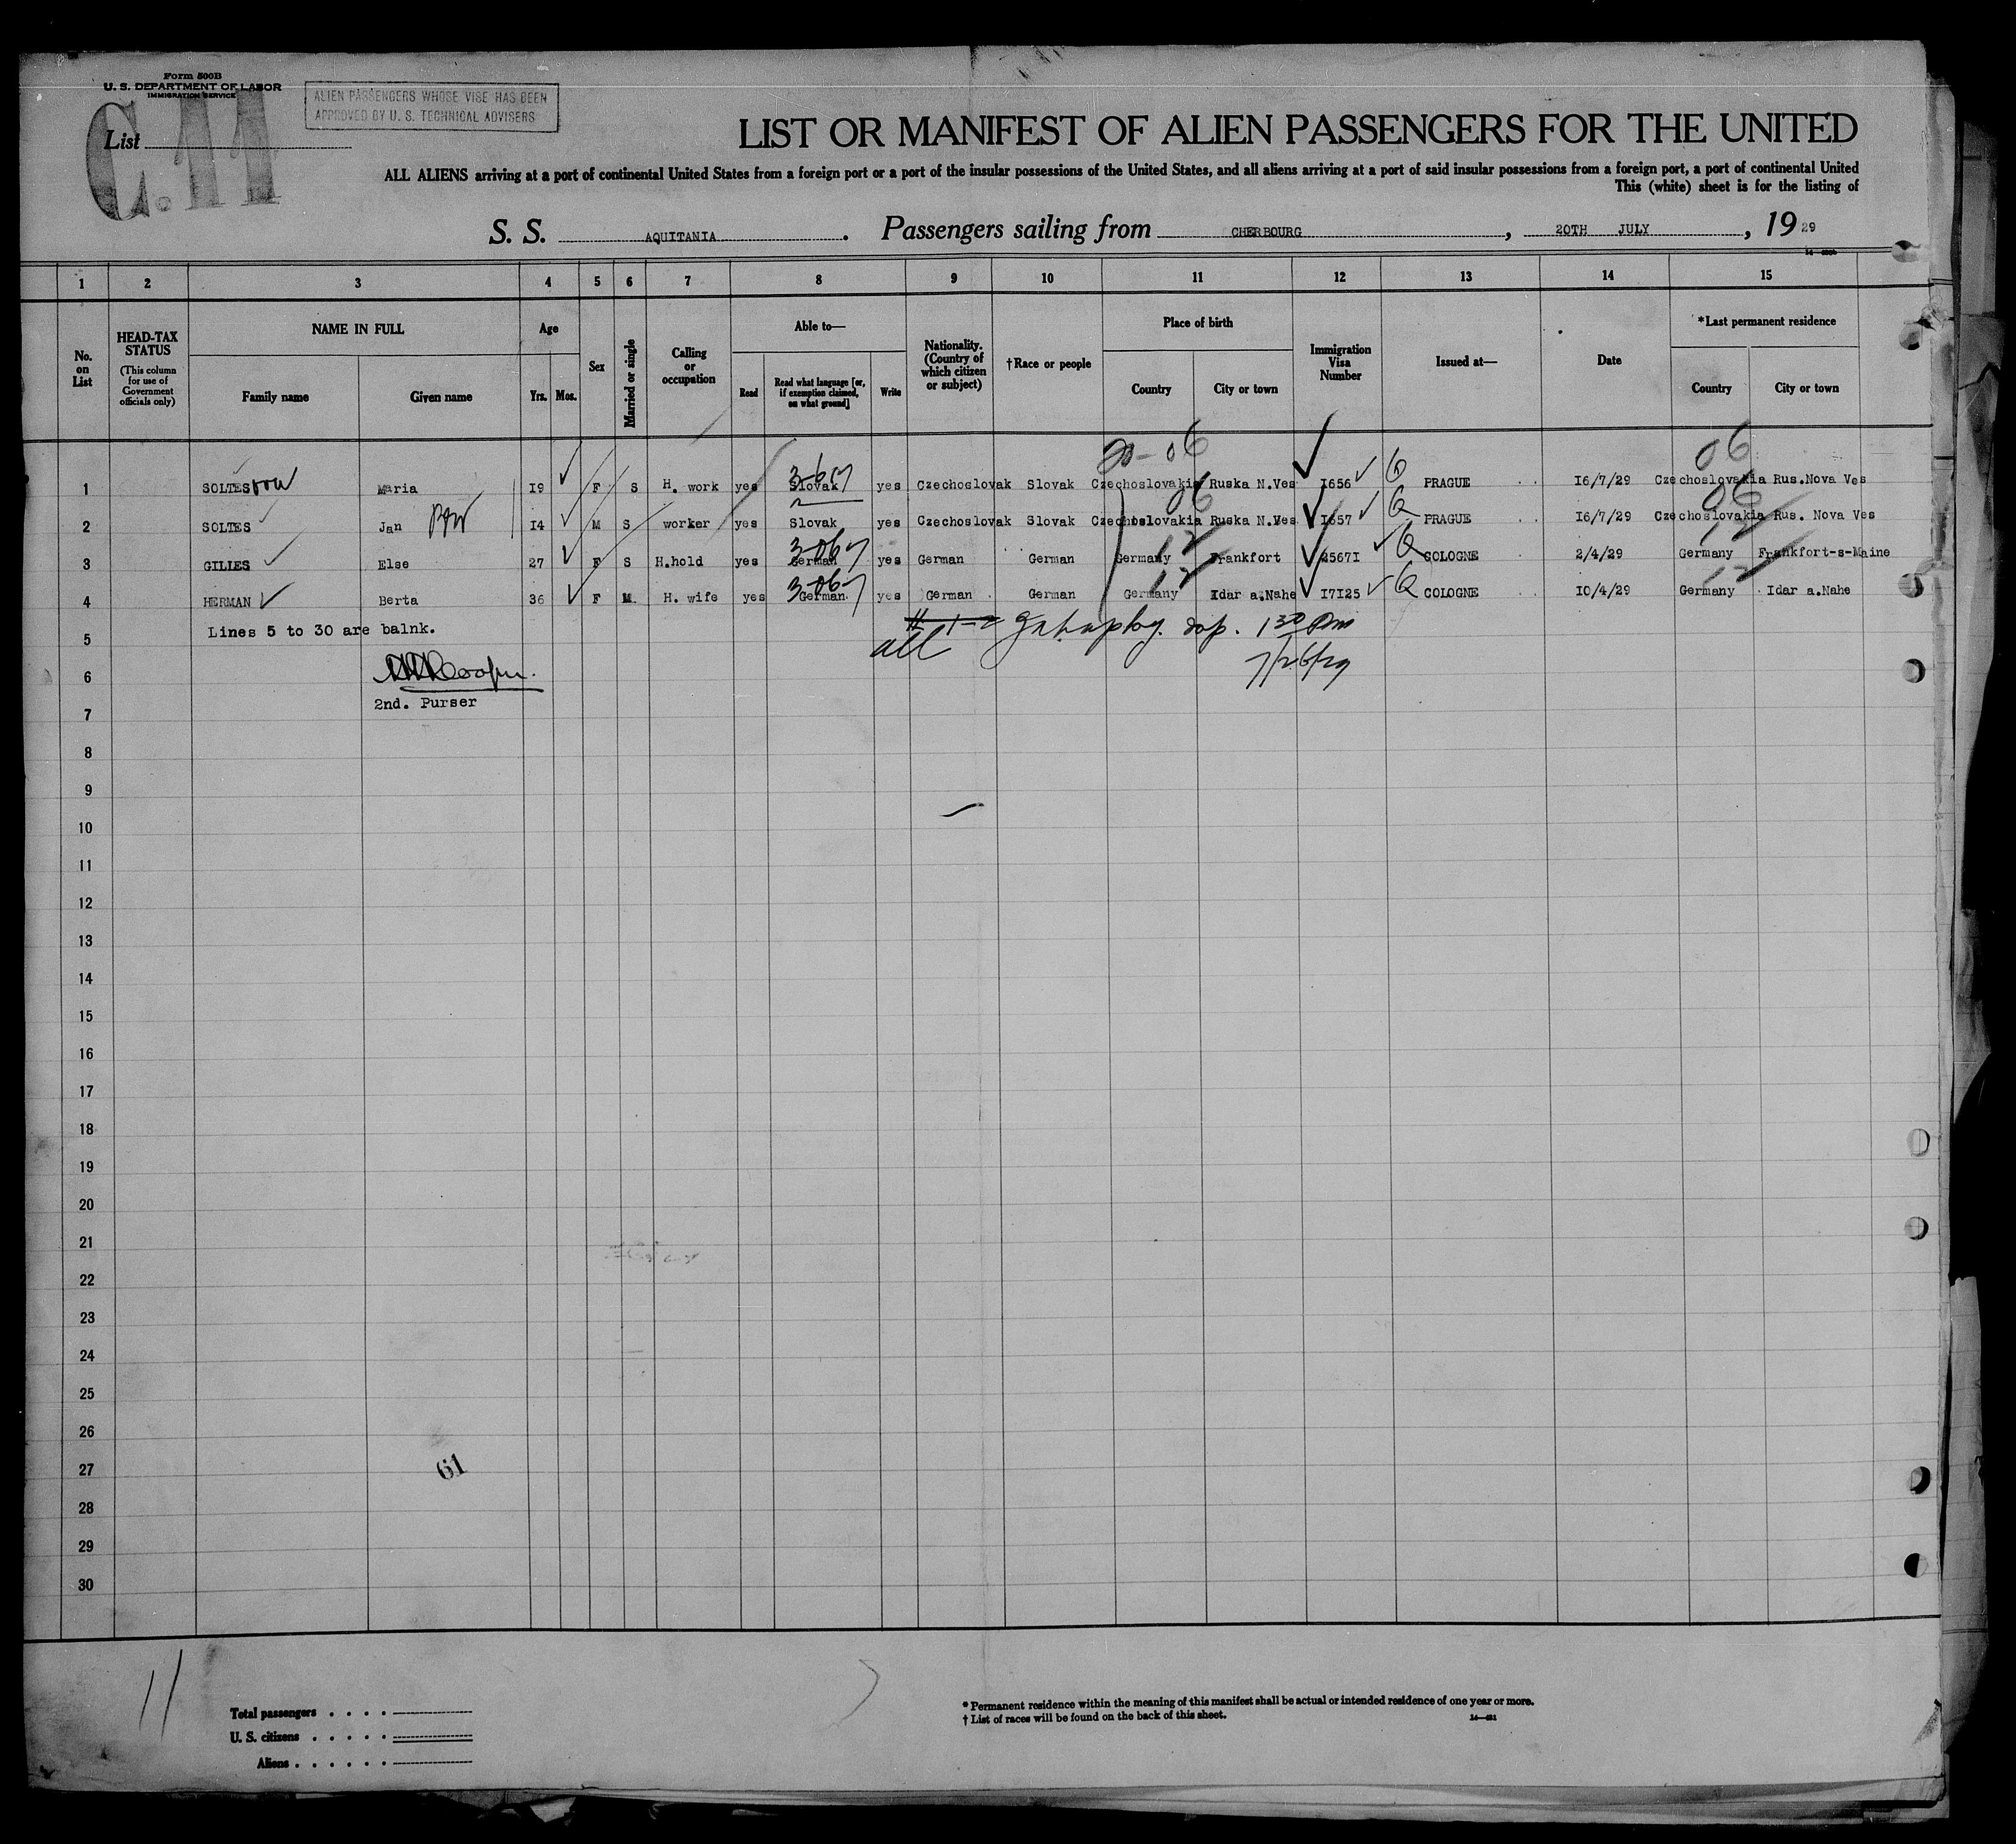 Form 500B
U. S. DEPARTMENT OF LABOR
IMMIGRATION SERVICE
ALIEN PASSENGERS WHOSE VISE HAS BEEN
APPROVED BY U. S. TECHNICAL ADVISERS
List
C.11
LIST OR MANIFEST OF ALIEN PASSENGERS FOR THE UNITED
ALL ALIENS arriving at a port of continental United States from a foreign port or a port of the insular possessions of the United States, and all aliens arriving at a port of said insular possessions from a foreign port, a port of continental United
This (white) sheet is for the listing of
S. S. AQUITANIA . Passengers sailing from CHERBOURG , 20TH JULY , 19 29
1 2 3 4 5 6 7 8 9 10 11 12 13 14 15
No. on List
HEAD-TAX STATUS
(This column for use of Government officials only)
NAME IN FULL
Family name
Given name
Age
Yrs. Mos.
Sex
Married or single
Calling or occupation
Able to—
Read
Read what language [or, if exemption claimed, on what ground]
Write
Nationality. (Country of which citizen or subject)
†Race or people
Place of birth
Country
City or town
Immigration Visa Number
Issued at—
Date
*Last permanent residence
Country
City or town
06
06
1 SOLTES Maria 19 F S H. work yes Slovak yes Czechoslovak Slovak Czechoslovakia Ruska N.Ves 1656 PRAGUE 16/7/29 Czechoslovakia Rus.Nova Ves
06
06
2 SOLTES Jan 14 M S worker yes Slovak yes Czechoslovak Slovak Czechoslovakia Ruska N.Ves 1657 PRAGUE 16/7/29 Czechoslovakia Rus. Nova Ves
12
12
3 GILLES Else 27 F S H.hold yes German yes German German Germany Frankfort 25671 COLOGNE 2/4/29 Germany Frankfort-s-Maine
12
12
4 HERMAN Berta 36 F M H. wife yes German yes German German Germany Idar a.Nahe 17125 COLOGNE 10/4/29 Germany Idar a.Nahe
Lines 5 to 30 are balnk.
5
all
1 30 Pm
7/26/29
6
2nd. Purser
7
8
9
10
11
12
13
14
15
16
17
18
19
20
21
22
23
24
25
26
27
61
28
29
30
11
Total passengers . . . .
U. S. citizens . . . . .
Aliens . . . . . .
* Permanent residence within the meaning of this manifest shall be actual or intended residence of one year or more.
† List of races will be found on the back of this sheet.